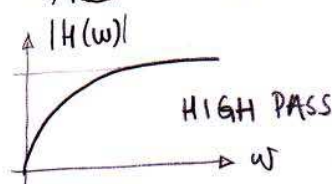 |H(w)|
HIGH PASS
w